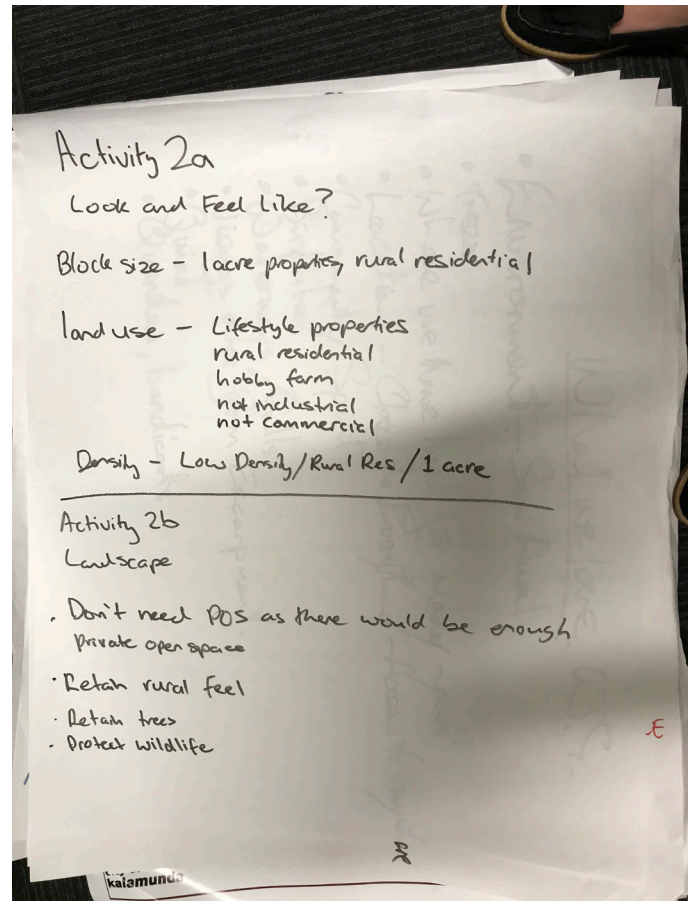 Activity 2a
Look and Feel Like?
Block size - 1acre properties, rural residential
land use - Lifestyle properties
rural residential
hobby farm
not industrial
not commercial
Density - Low Density/Rural Res/1 acre
Activity 2b
Landscape
. Don't need POS as there would be enough
Private open space
· Retain rural feel
· Retain trees
- Protect wildlife
E
kalamunda